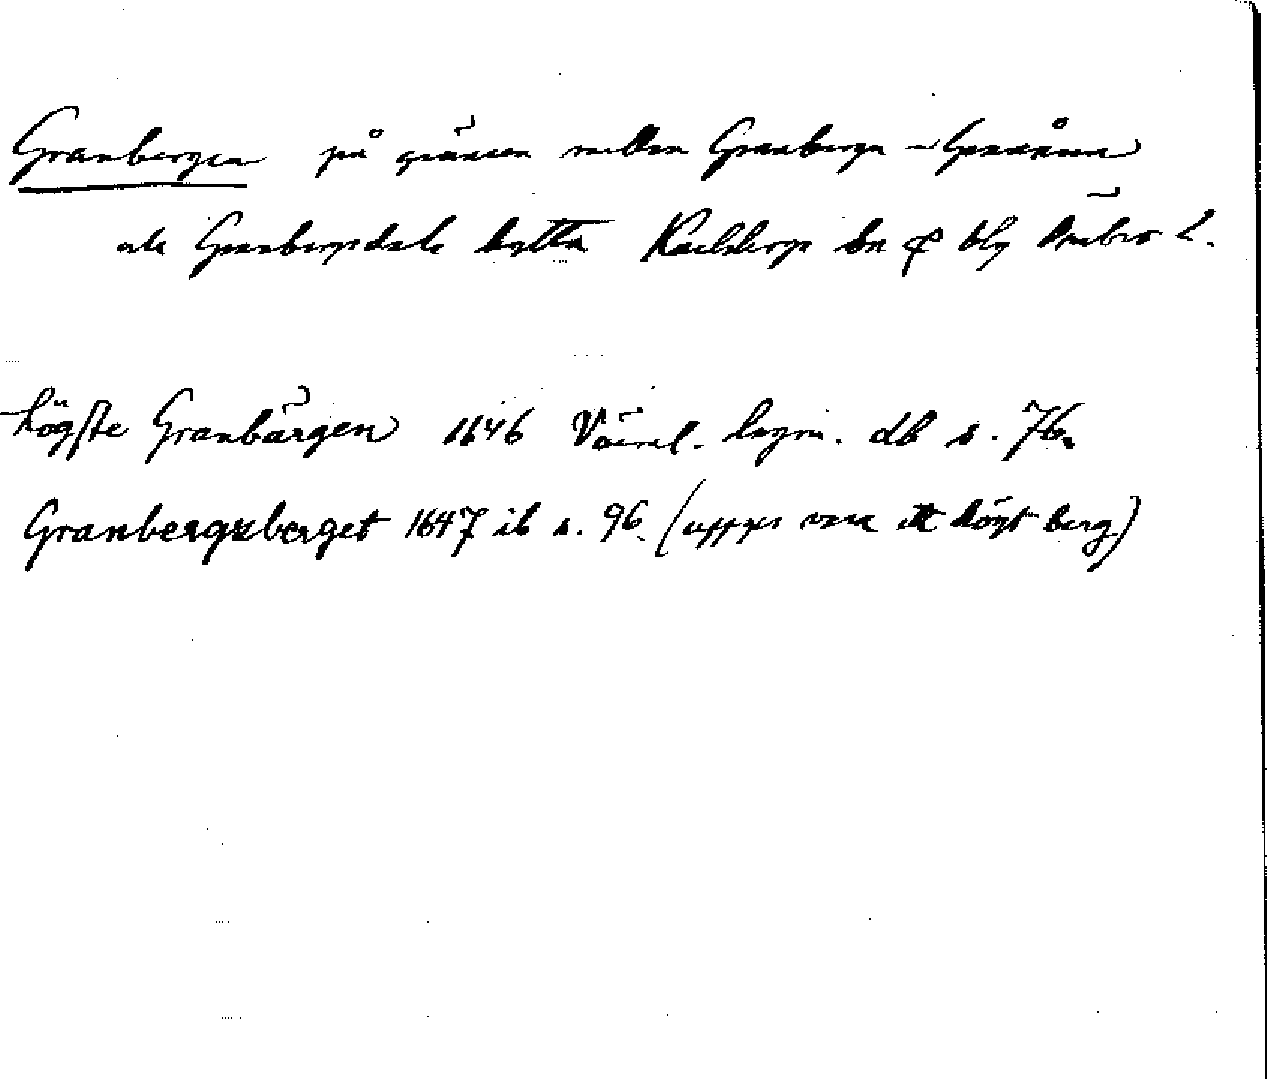 Granbergen på gränsen mellan Granbergen - Granåsen
och Granbergsdals hytta Karlskoga sn Örebro l.
högste Granbärgen 1646 Värml. lagm. db s. 76.
Granbergxberget 1647 ib s. 96. (uppges vara itt högt berg.)